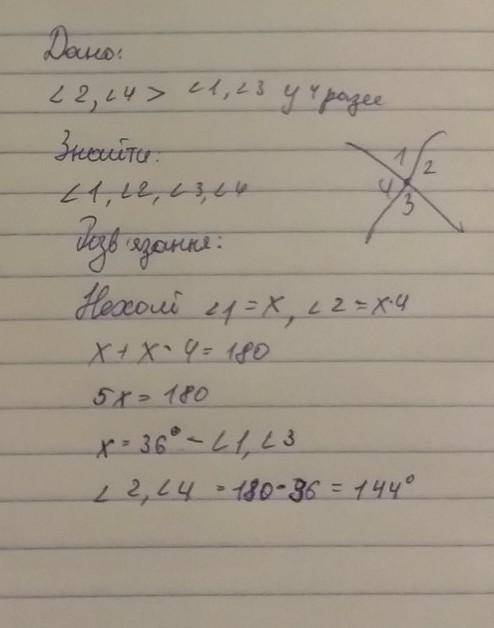 Дано:
∠2, ∠4 > ∠1, ∠3 у 4 рази
Знайти:
∠1, ∠2, ∠3, ∠4
1 2
4 3
Розв'язання:
Нехай ∠1 = x, ∠2 = x·4
x + x · 4 = 180
5x = 180
x = 36° - ∠1, ∠3
∠2, ∠4 = 180 - 36 = 144°